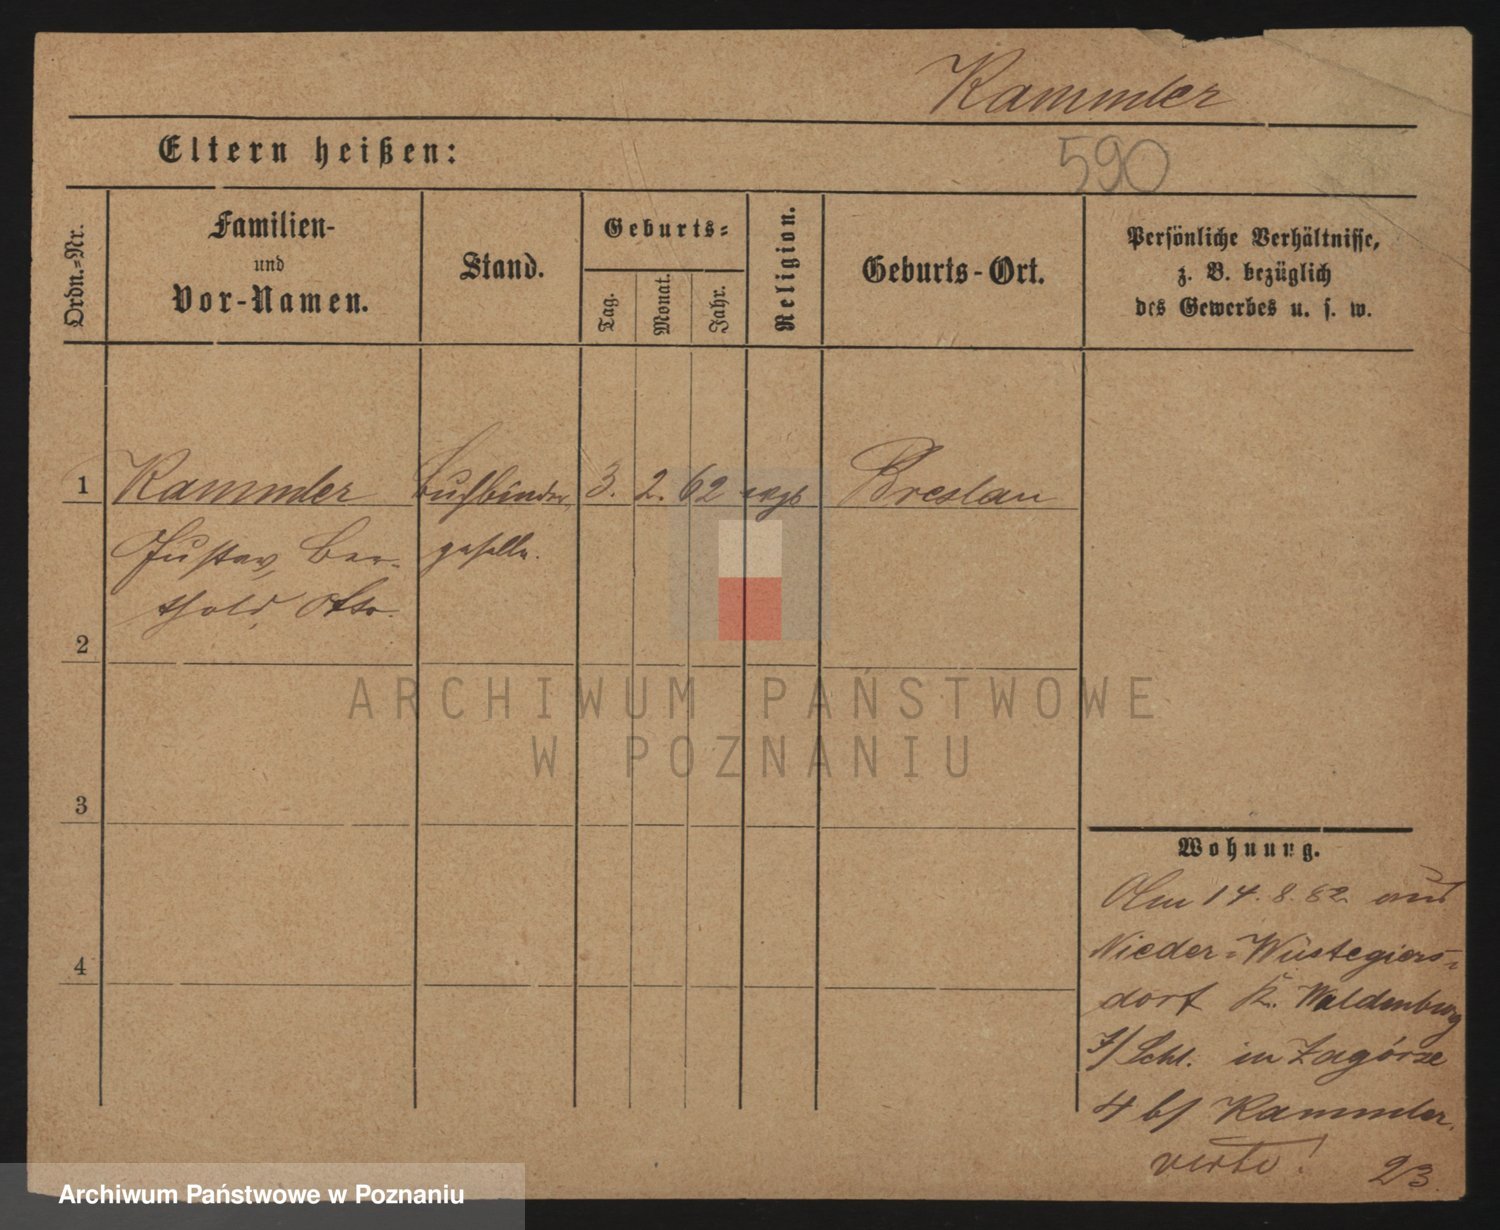 Kammler
Eltern heißen:
590
Ordn.-Nr.
Familien-
und
Vor-Namen.
Stand.
Geburts-
Tag.
Monat.
Jahr.
Religion.
Geburts-Ort.
Persönliche Verhältnisse,
z. B. bezüglich
des Gewerbes u. s. w.
1 Kammler Buchbinder 3. 2. 62 evgl Breslau
Gustav, Ber- geselle.
thold, Otto.
2
ARCHIWUM PAŃSTWOWE
W POZNANIU
3
Wohnung.
Am 14.8.82 aus
Nieder-Wüstegiers-
dorf K. Waldenburg
i/Schl. in Zagórze
4 b/ Kammler.
verte! 23
4
Archiwum Państwowe w Poznaniu